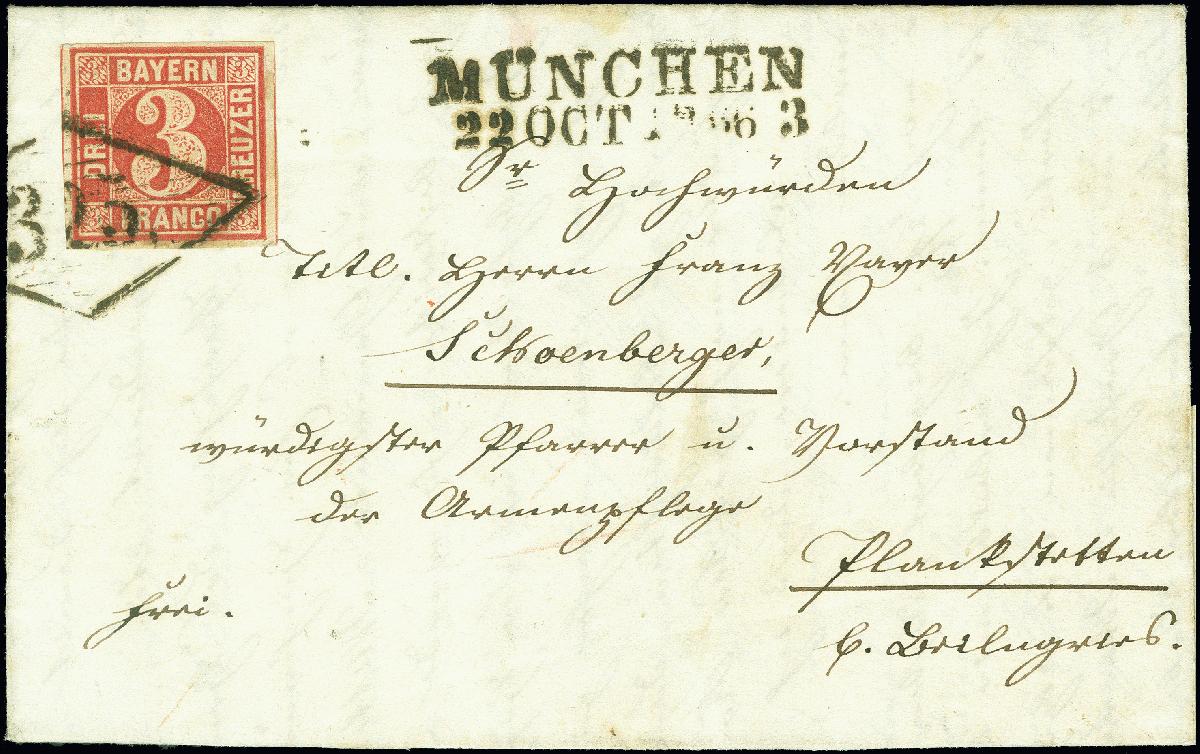 BAYERN
DREI
3
KREUZER
FRANCO
MÜNCHEN
22 OCT 3
Sr Hochwürden
Titl. Herrn Franz Xaver
Schoenberger,
würdigster Pfarrer u. Vorstand
der Armenpflege
Plankstetten
frei.
b. Beilngries.